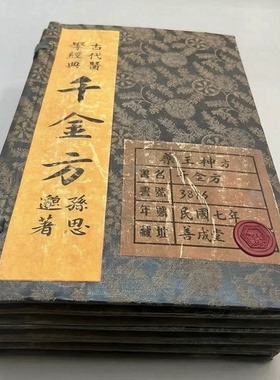 古代醫
學經典
千金方
孫思
邈著
藥王神方
書名 千金方
書號
年號 民國七年
藏址 善成堂